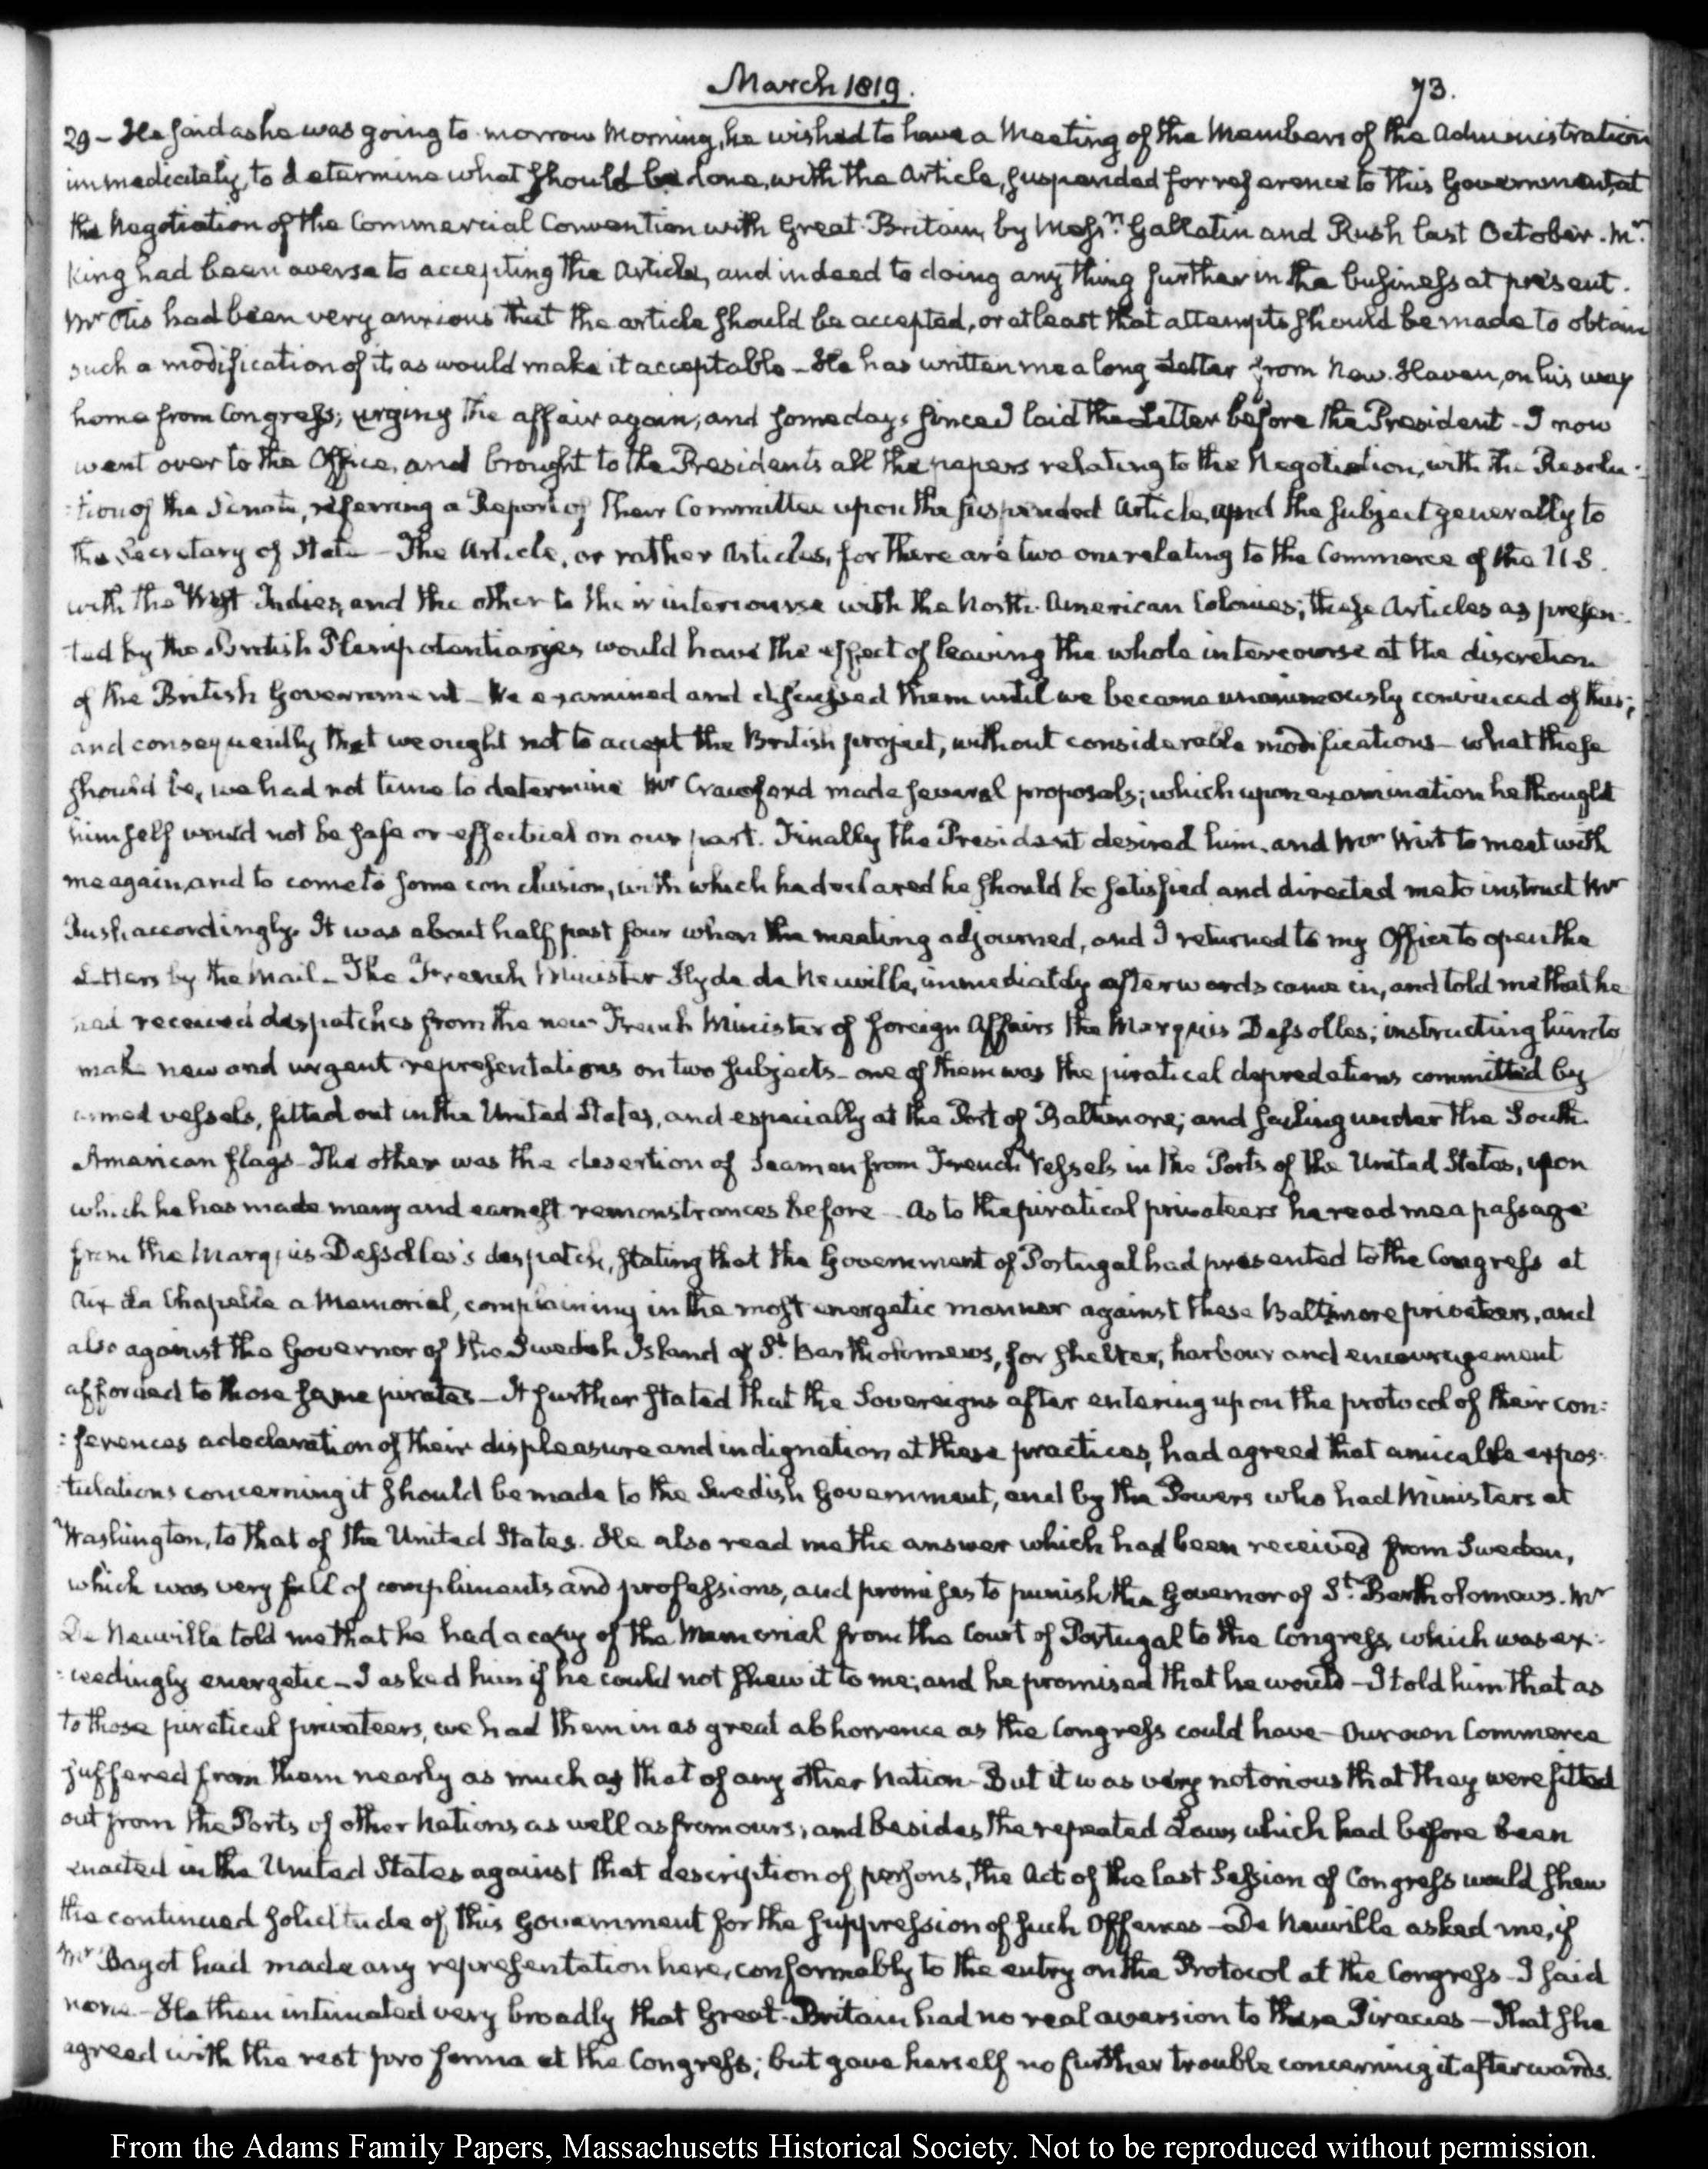 March 1819.
73.
29 - He said as he was going to-morrow Morning, he wished to have a Meeting of the Members of the Administration
immediately, to determine what should be done, with the Article, suspended for reference to this Government, at
the Negotiation of the Commercial Convention with Great-Britain, by Messrs. Gallatin and Rush last October. Mr.
King had been averse to accepting the Article, and indeed to doing any thing further in the business at present.
Mr Otis had been very anxious that the article should be accepted, or at least that attempts should be made to obtain
such a modification of it, as would make it acceptable - He has written me a long Letter from New-Haven, on his way
home from Congress, urging the affair again, and some days since I laid the Letter before the President - I now
went over to the Office, and brought to the Presidents all the papers relating to the Negotiation, with the Resolu-
:tion of the Senate, referring a Report of their Committee upon the suspended Article, and the subject generally to
the Secretary of State - The Article, or rather Articles, for there are two one relating to the Commerce of the U.S.
with the West Indies, and the other to their intercourse with the North-American Colonies; these Articles as presen-
:ted by the British Plenipotentiaries would have the effect of leaving the whole intercourse at the discretion
of the British Government - We examined and discussed them until we became unanimously convinced of this;
and consequently that we ought not to accept the British project, without considerable modifications - what these
should be, we had not time to determine Mr Crawford made several proposals; which upon examination he thought
himself would not be safe or effectual on our part. Finally the President desired him, and Mr Wirt to meet with
me again, and to come to some conclusion, with which he declared he should be satisfied and directed me to instruct Mr
Rush accordingly. It was about half past four when the meeting adjourned, and I returned to my Office to open the
Letters by the Mail - The French Minister Hyde de Neuville, immediately afterwards came in, and told me that he
had received despatches from the new French Minister of foreign Affairs the Marquis Dessolles; instructing him to
make new and urgent representations on two subjects - one of them was the piratical depredations committed by
armed vessels, fitted out in the United States, and especially at the Port of Baltimore; and sailing under the South
American flags - The other was the desertion of Seamen from French Vessels in the Ports of the United States, upon
which he has made many and earnest remonstrances before - As to the piratical privateers he read me a passage
from the Marquis Dessolles's despatch, stating that the Government of Portugal had presented to the Congress at
Aix la Chapelle a Memorial, complaining in the most energetic manner against these Baltimore privateers, and
also against the Governor of the Swedish Island of St. Bartholomews, for shelter, harbour and encouragement
afforded to those same pirates - It further stated that the Sovereigns after entering upon the protocol of their con:
:ferences a declaration of their displeasure and indignation at these practices, had agreed that amicable expos-
:tulations concerning it should be made to the Swedish Government, and by the Powers who had Ministers at
Washington, to that of the United States. He also read me the answer which had been received from Sweden,
which was very full of compliments and professions, and promises to punish the Governor of St. Bartholomews. Mr
De Neuville told me that he had a copy of the Memorial from the Court of Portugal to the Congress, which was ex:
:ceedingly energetic - I asked him if he could not shew it to me; and he promised that he would - I told him that as
to those piratical privateers, we had them in as great abhorrence as the Congress could have - Our own Commerce
suffered from them nearly as much as that of any other Nation - But it was very notorious that they were fitted
out from the Ports of other Nations as well as from ours; and besides the repeated Laws which had before been
enacted in the United States against that description of persons, the Act of the last Session of Congress would shew
the continued solicitude of this Government for the suppression of such Offences - De Neuville asked me, if
Mr Bagot had made any representation here, conformably to the entry on the Protocol at the Congress - I said
none - He then intimated very broadly that Great-Britain had no real aversion to these Piracies - That she
agreed with the rest pro forma at the Congress; but gave herself no further trouble concerning it afterwards.
From the Adams Family Papers, Massachusetts Historical Society. Not to be reproduced without permission.